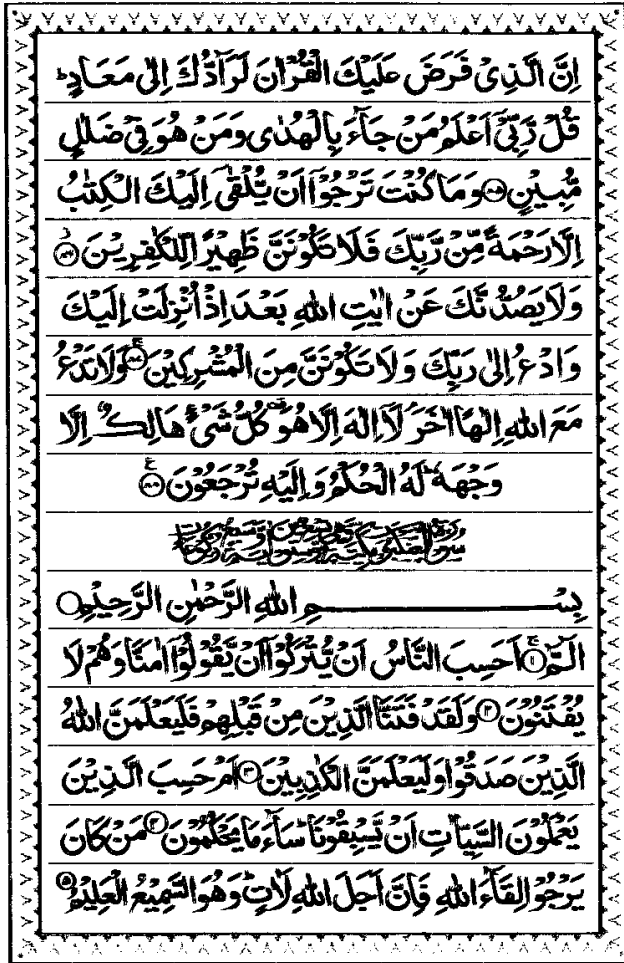 اِنَّ الَّذِیْ فَرَضَ عَلَیْكَ الْقُرْاٰنَ لَرَآدُّكَ اِلٰی مَعَادٍ ؕ
قُلْ رَّبِّیْۤ اَعْلَمُ مَنْ جَآءَ بِالْهُدٰی وَمَنْ هُوَ فِیْ ضَلٰلٍ
مُّبِیْنٍ ۝۸۵ وَمَا كُنْتَ تَرْجُوْۤا اَنْ یُّلْقٰۤی اِلَیْكَ الْكِتٰبُ
اِلَّا رَحْمَةً مِّنْ رَّبِّكَ فَلَا تَكُوْنَنَّ ظَهِیْرًا لِّلْكٰفِرِیْنَ ۝۸۶
وَلَا یَصُدُّنَّكَ عَنْ اٰیٰتِ اللّٰهِ بَعْدَ اِذْ اُنْزِلَتْ اِلَیْكَ
وَادْعُ اِلٰی رَبِّكَ وَلَا تَكُوْنَنَّ مِنَ الْمُشْرِكِیْنَ ۝۸۷ وَلَا تَدْعُ
مَعَ اللّٰهِ اِلٰهًا اٰخَرَ ۘ لَاۤ اِلٰهَ اِلَّا هُوَ ۫ كُلُّ شَیْءٍ هَالِكٌ اِلَّا
وَجْهَهٗ ؕ لَهُ الْحُكْمُ وَاِلَیْهِ تُرْجَعُوْنَ ۝۸۸
بِسْمِ اللّٰهِ الرَّحْمٰنِ الرَّحِیْمِ
الٓمّٓ ۝۱ اَحَسِبَ النَّاسُ اَنْ یُّتْرَكُوْۤا اَنْ یَّقُوْلُوْۤا اٰمَنَّا وَهُمْ لَا
یُفْتَنُوْنَ ۝۲ وَلَقَدْ فَتَنَّا الَّذِیْنَ مِنْ قَبْلِهِمْ فَلَیَعْلَمَنَّ اللّٰهُ
الَّذِیْنَ صَدَقُوْا وَلَیَعْلَمَنَّ الْكٰذِبِیْنَ ۝۳ اَمْ حَسِبَ الَّذِیْنَ
یَعْمَلُوْنَ السَّیِّاٰتِ اَنْ یَّسْبِقُوْنَا ؕ سَآءَ مَا یَحْكُمُوْنَ ۝۴ مَنْ كَانَ
یَرْجُوْا لِقَآءَ اللّٰهِ فَاِنَّ اَجَلَ اللّٰهِ لَاٰتٍ ؕ وَهُوَ السَّمِیْعُ الْعَلِیْمُ ۝۵